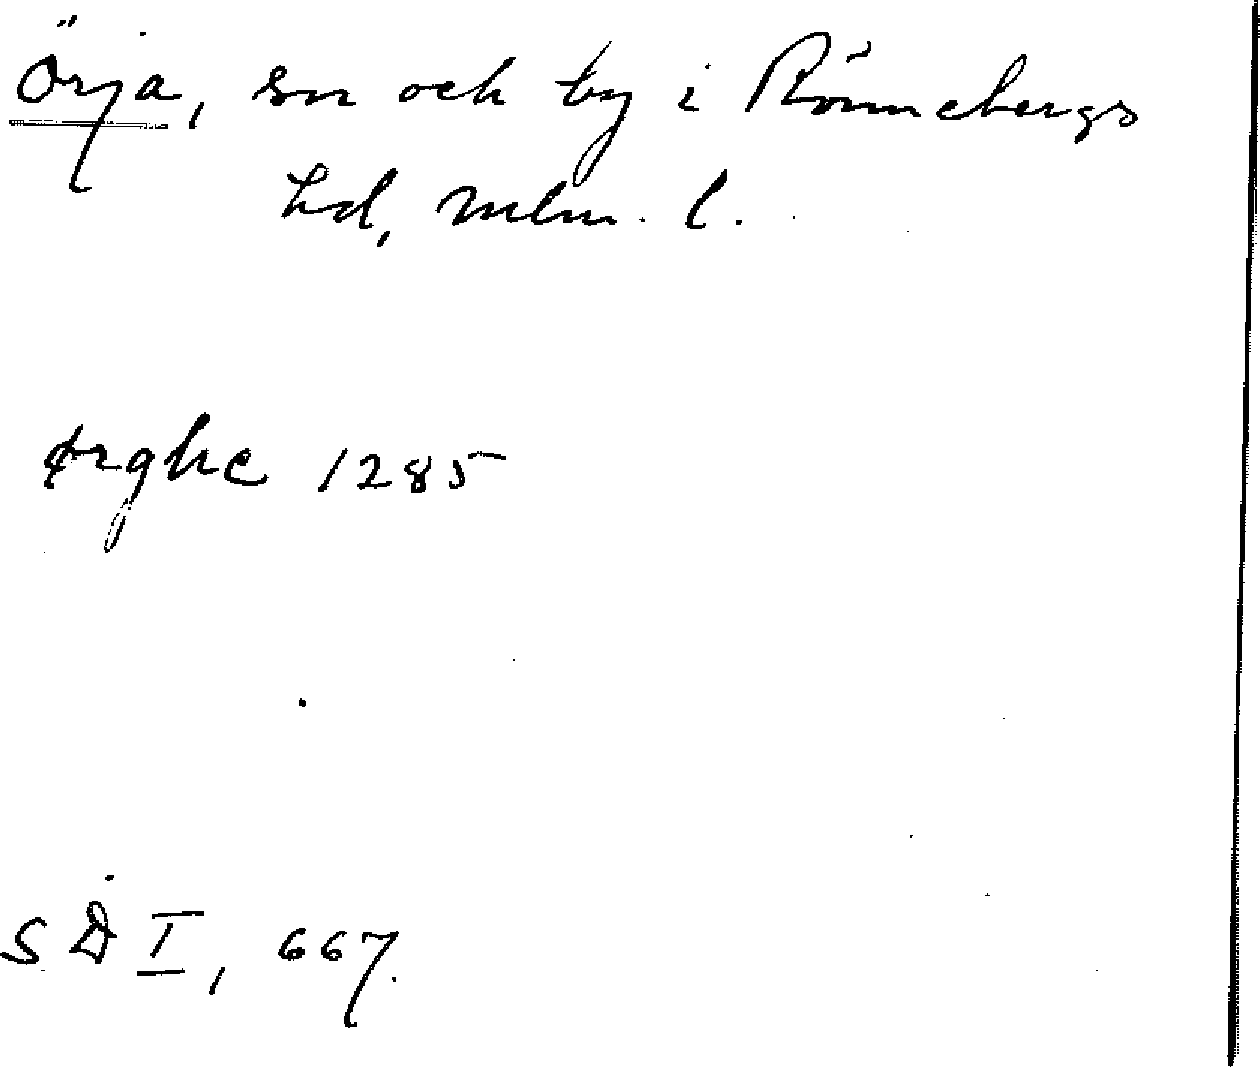 Örja, sn och by i Rönnebergs
hd, Mlm. l.
ørghe 1285
SD I, 667.